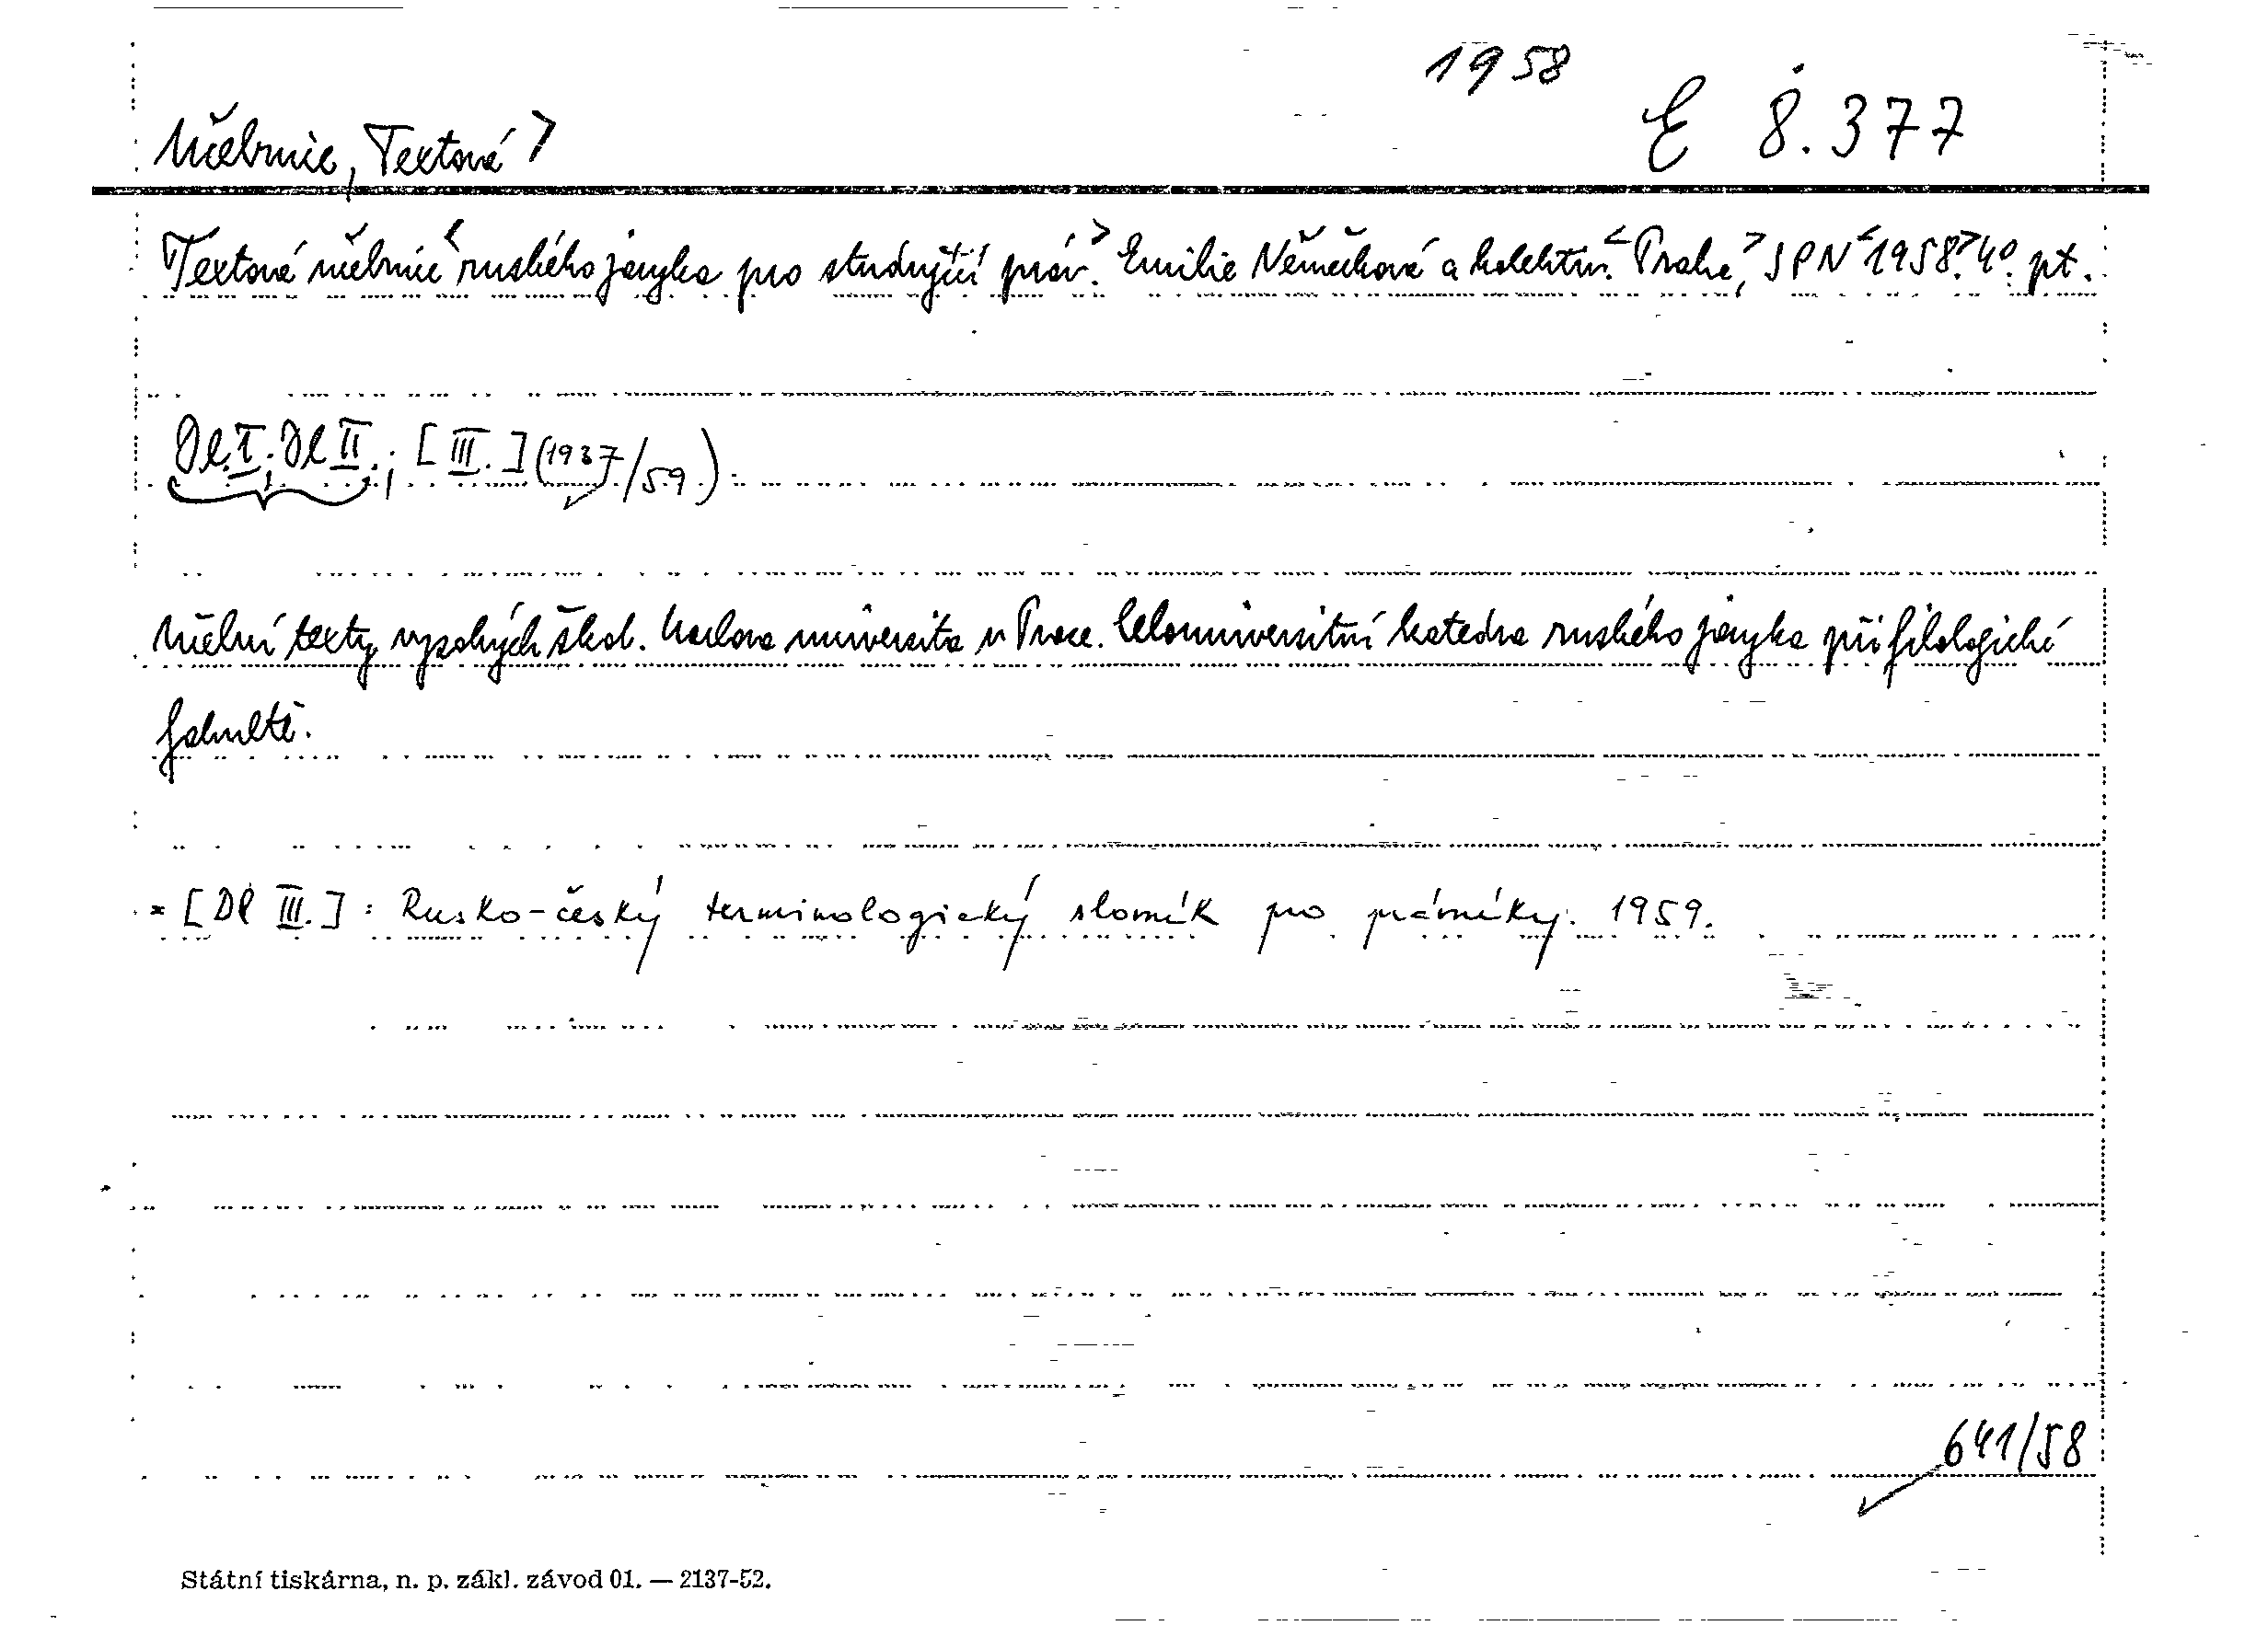 1958
E 8.377
Učebnice, Textová >
Textová učebnice < ruského jazyka pro studující práv. > Emilie Němečková a kolektiv. < Praha, > SPN < 1958. > 4°. pt.
Dl. I., Dl II.; [III.] (1937/59).
Učební texty vysokých škol. Karlova universita v Praze. Celouniversitní katedra ruského jazyka při filologické
fakultě.
* [Dl III.]: Rusko-český terminologický slovník pro právníky. 1959.
641/58
Státní tiskárna, n. p. zákl. závod 01. — 2137-52.